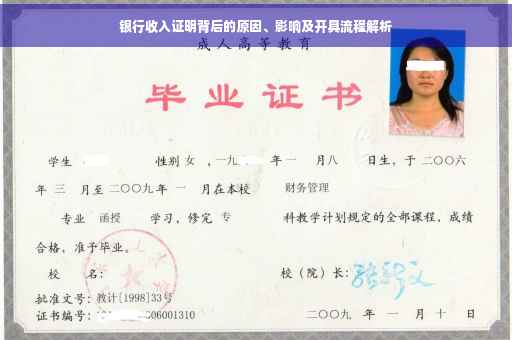 银行收入证明背后的原因、影响及开具流程解析
成人高等教育
毕业证书
学生 性别 女 ，一九 年 一 月八 日生，于 二〇〇六
年 三 月至 二〇〇九 年 一 月在本校 财务管理
专业 函授 学习，修完 专 科教学计划规定的全部课程，成绩
合格，准予毕业。
校 名： 校（院）长：
批准文号：教计[1998]33号
证书编号： 06001310 二〇〇九 年 一 月 十 日